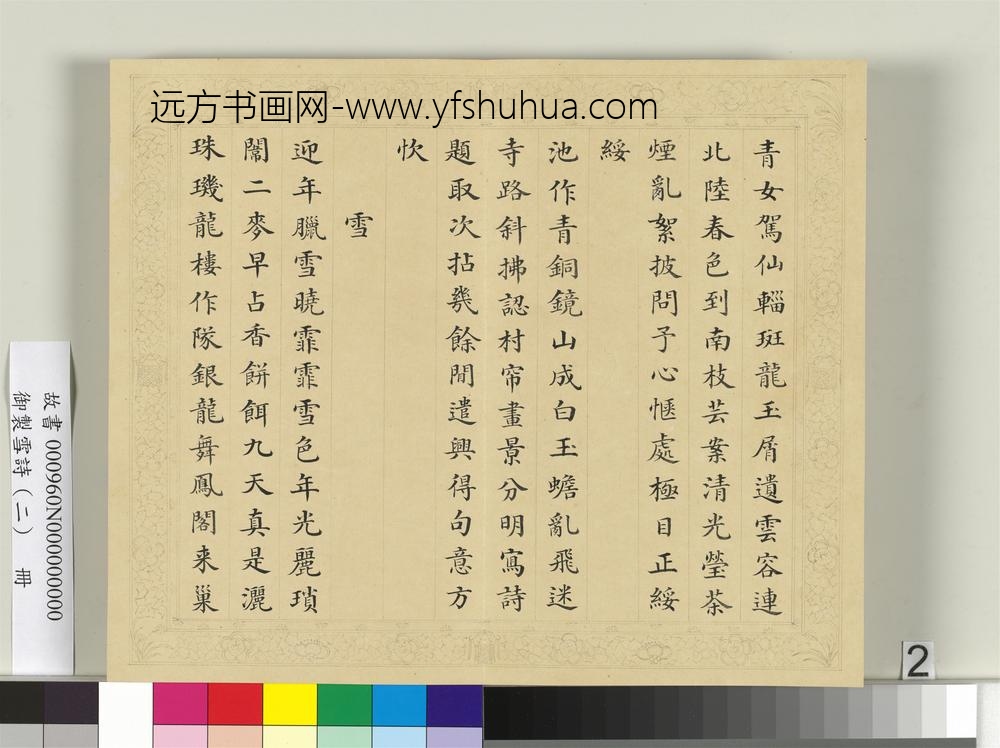 远方书画网-www.yfshuhua.com
青女駕仙輜斑龍玉屑遺雲容連
北陸春色到南枝芸案清光瑩茶
煙亂絮披問予心愜處極目正綏
綏
池作青銅鏡山成白玉蟾亂飛迷
寺路斜拂認村帘畫景分明寫詩
題取次拈幾餘閒遣興得句意方
忺
雪
迎年臘雪曉霏霏雪色年光麗瑣
闈二麥早占香餅餌九天真是灑
珠璣龍樓作隊銀龍舞鳳閣来巢
故書 000960N000000000
御製雪詩(二) 冊
2